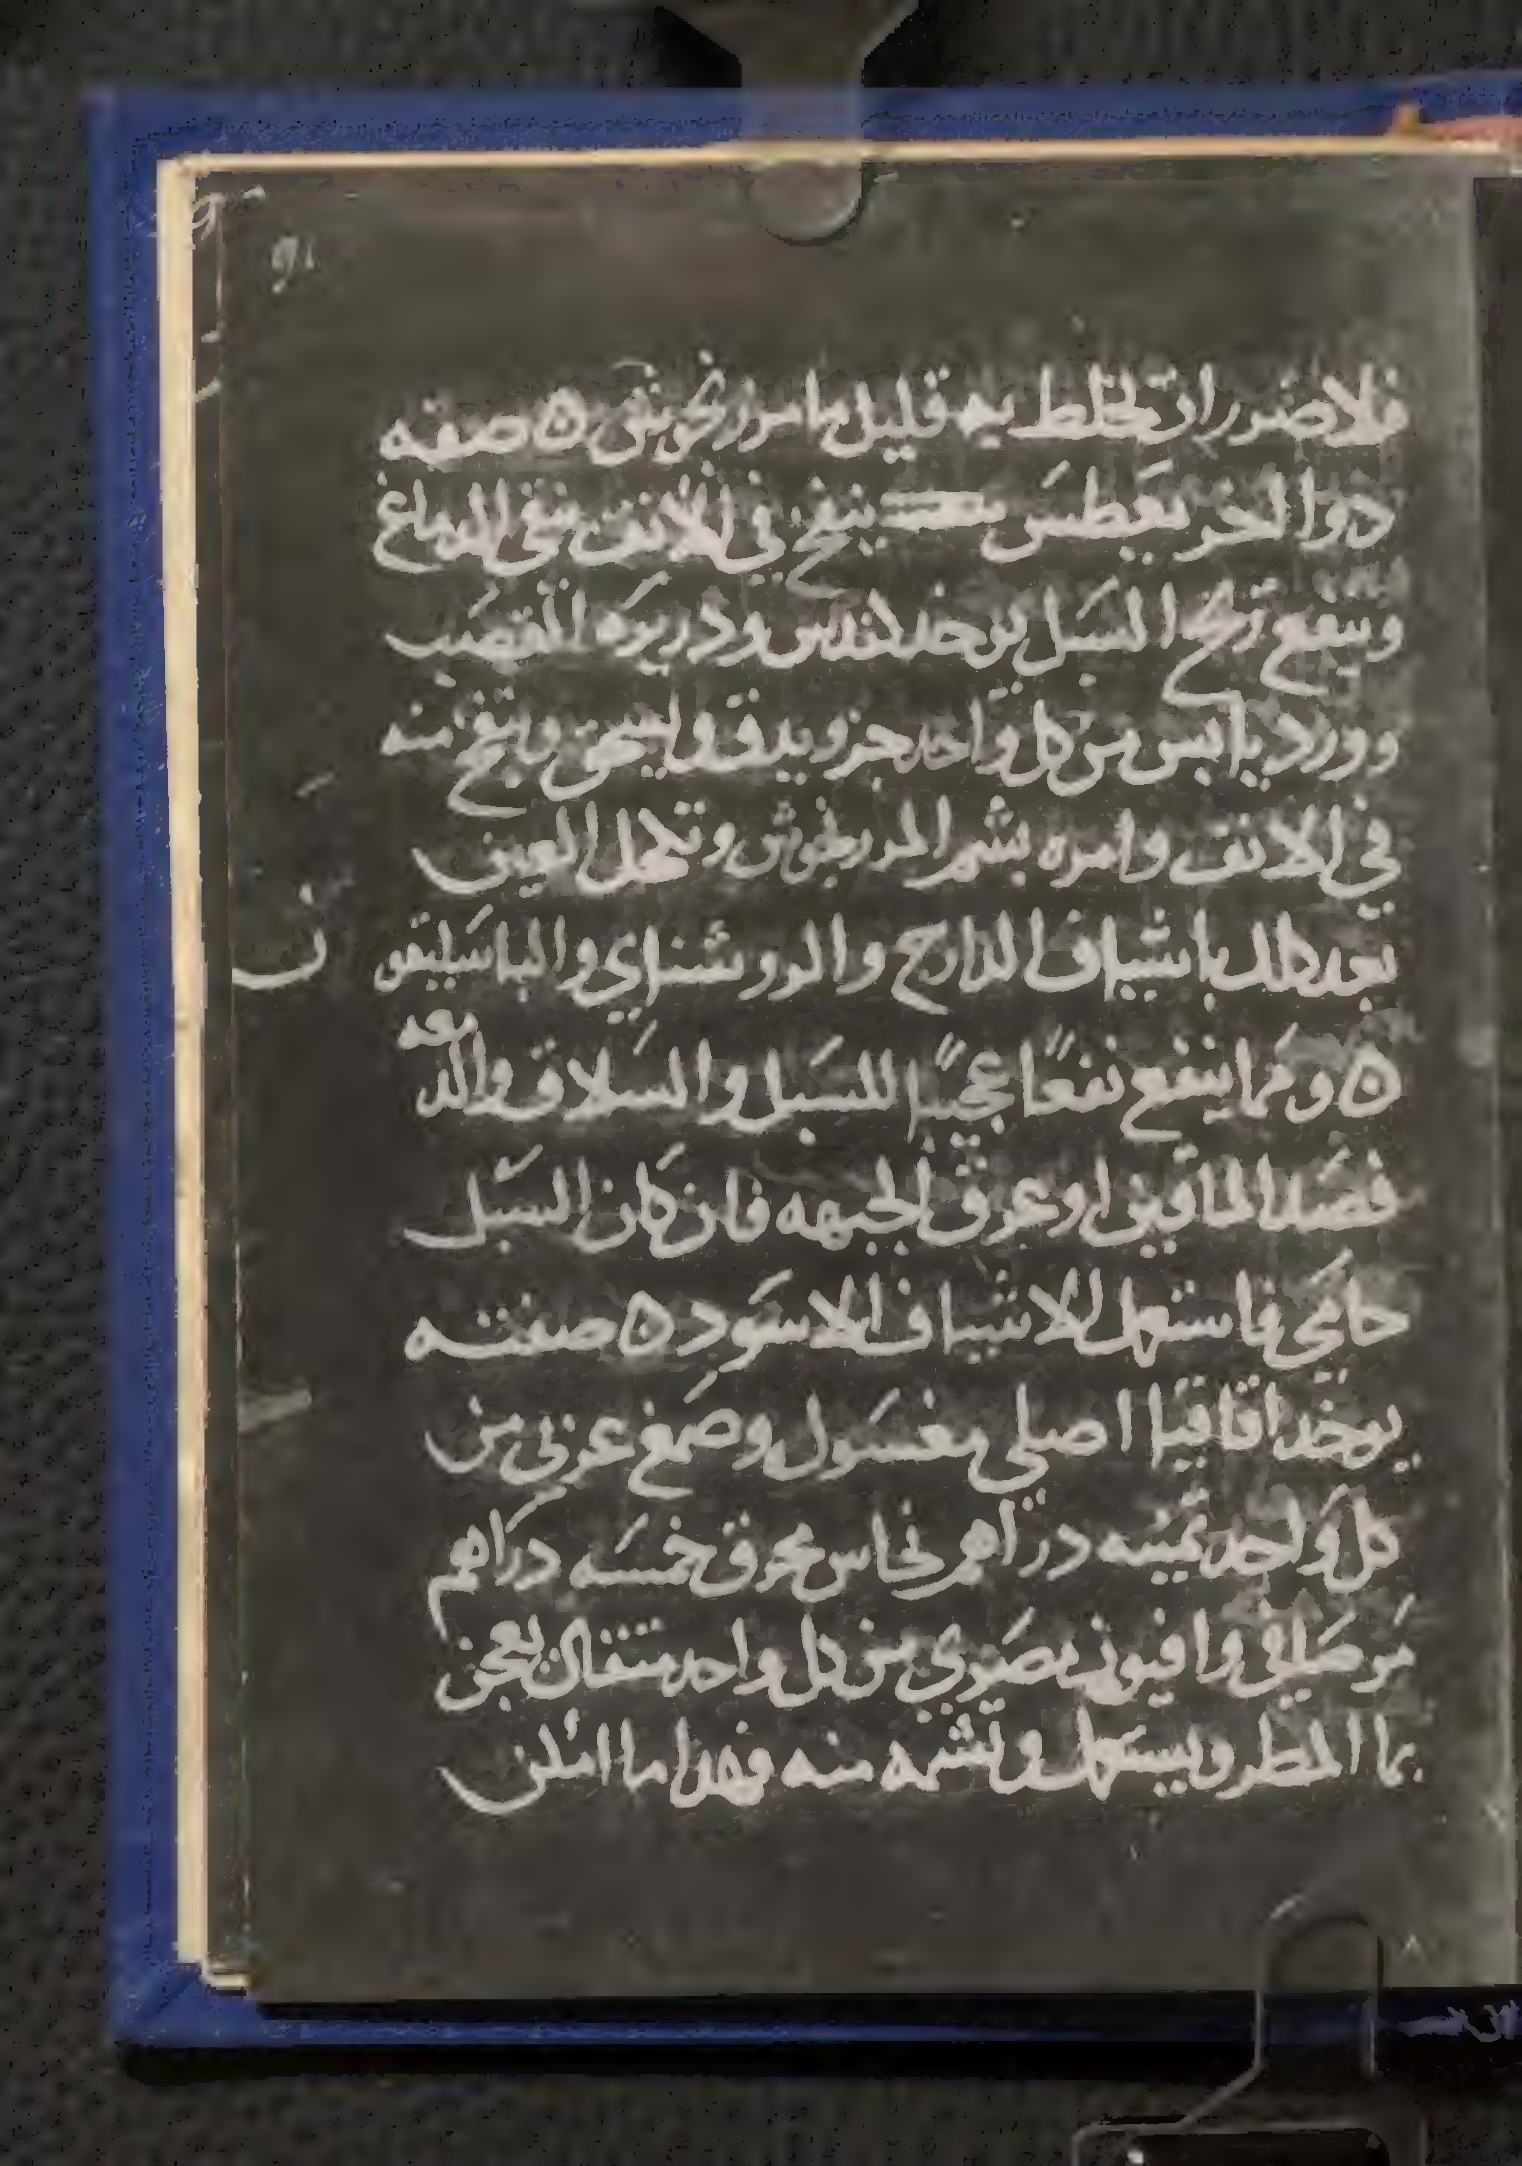 ٩١
فلا ضرر ان تخلط به قليل ما مرزنجوش ۞ صفه
دوا اخر يعطس ينفخ في الانف ينقي الدماغ
وينفع ريح السبل يوخد كندس ودريره القصب
وورد يا ابس من كل واحد جزو يدق وليسحق وينفخ منه
في الانف وامره بشم المرزنجوش وتكحل العين
بعد دلك باشياف الدارج والروشناي والباسليقون
۞ ومما ينفع نفعًا عجيبًا للسبل والسلاق والدمعه
فصد الماقين او عرق الجبهه فان كان السبل
حامي فاستعمل الاشياف الاسود ۞ صفته
يوخد اقاقيا اصلي مغسول وصمغ عربي من
كل واحد ثمنيه دراهم نحاس محرق خمسه دراهم
مر صافي وافيون مصري من كل واحد متقال يعجن
بما المطر ويستعمل وتشمه منه فهدا ما امكن